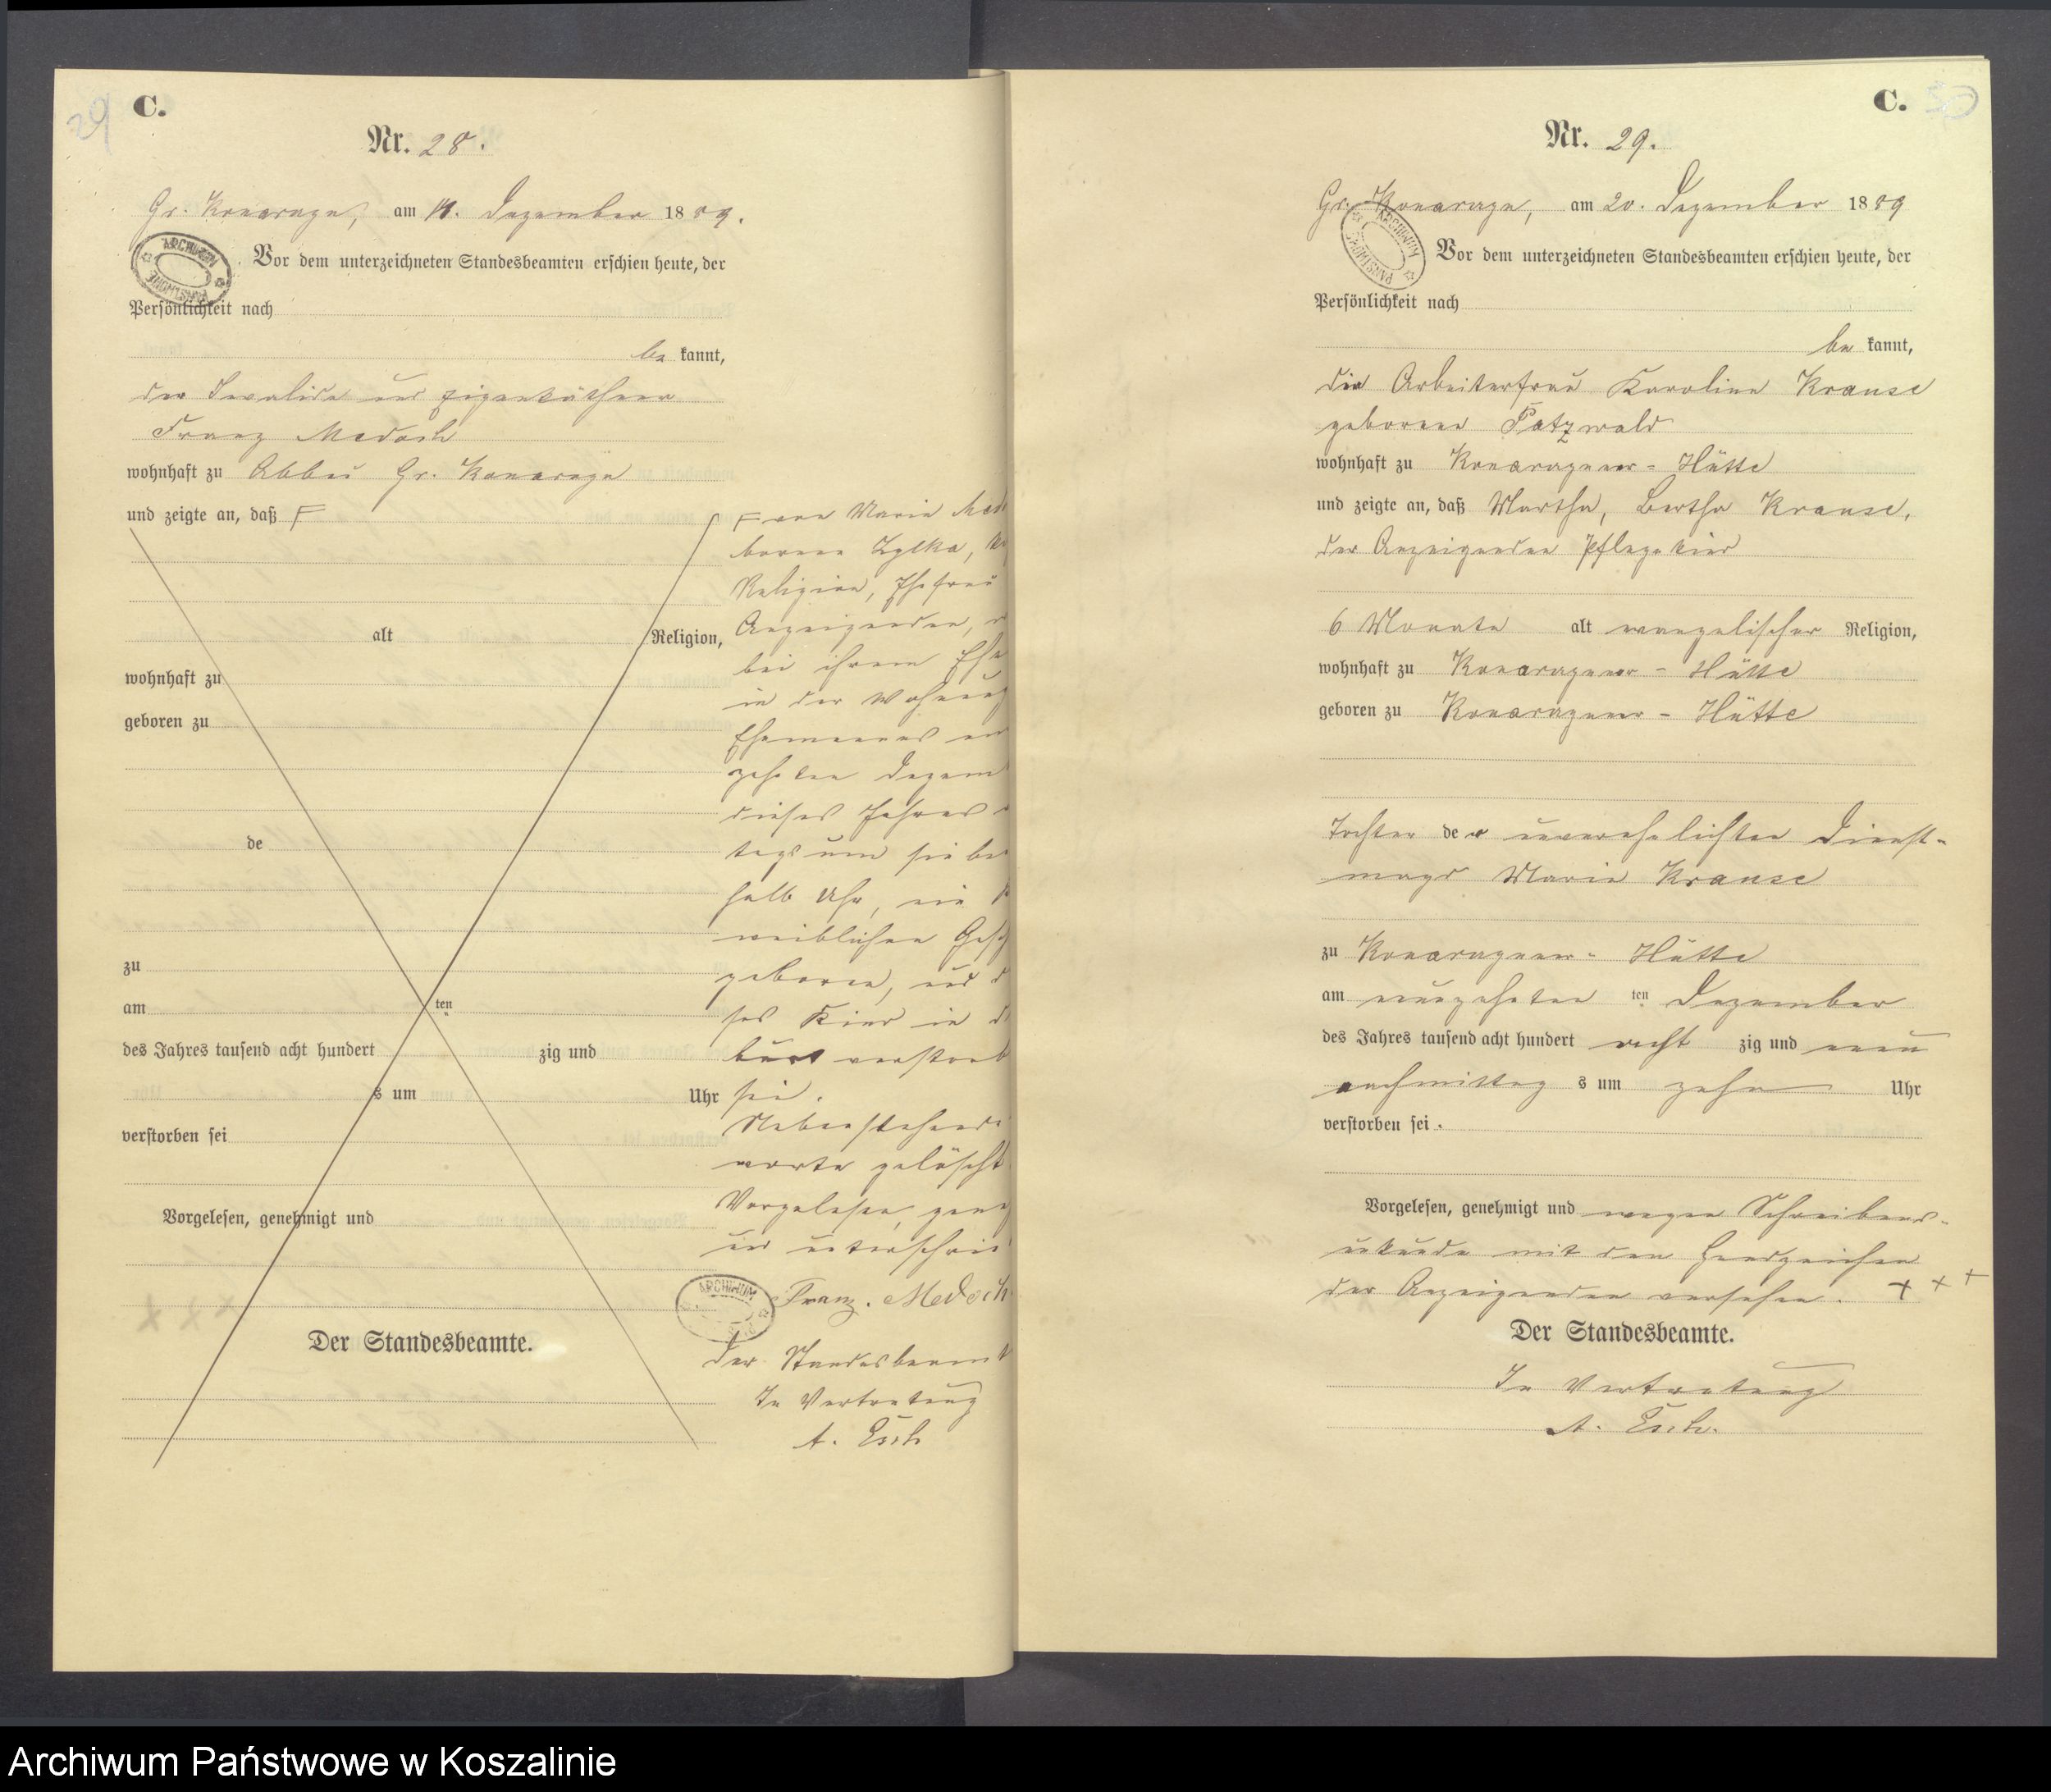 29
C.
Nr. 28.
Gr. Konarzyn, am 11. Dezember 1889.
ARCHIWUM PAŃSTWOWE
Vor dem unterzeichneten Standesbeamten erschien heute, der
Persönlichkeit nach
be kannt,
der Invalide und Eigenkäthner
Franz Medoch
wohnhaft zu Abbau Gr. Konarzyn
und zeigte an, daß F
alt Religion,
wohnhaft zu
geboren zu
de
zu
am ten
des Jahres tausend acht hundert zig und
s um Uhr
verstorben sei
Vorgelesen, genehmigt und
Der Standesbeamte.
F von Maria Med
borene Zylka,
Religion, Ehefrau
Anzeigenden,
bei ihrem Ehe
in der Wohnung
Ehemannes am
zehnten Dezem
dieses Jahres
tags um sieben
halb Uhr, ein
weiblichen Gesch
geboren, und
ses Kind in d
burt verstorb
sei.
Nebenstehende
worte gelöscht
Vorgelesen, geneh
und unterschrie
ARCHIWUM
Franz. Medoch
Der Standesbeamt
In Vertretung
A. Esch
C. 30
Nr. 29.
Gr. Konarzyn, am 20. Dezember 1889
ARCHIWUM PAŃSTWOWE
Vor dem unterzeichneten Standesbeamten erschien heute, der
Persönlichkeit nach
be kannt,
die Arbeiterfrau Karoline Krause
geborene Patzwald
wohnhaft zu Konarzyner-Hütte
und zeigte an, daß Martha, Bertha Krause,
der Anzeigenden Pflegekind
6 Monate alt evangelischer Religion,
wohnhaft zu Konarzyner-Hütte
geboren zu Konarzyner-Hütte
Tochter der unverehelichten Dienst-
magd Marie Krause
zu Konarzyner-Hütte
am neunzehnten ten Dezember
des Jahres tausend acht hundert acht zig und neun
nachmittag s um zehn Uhr
verstorben sei.
Vorgelesen, genehmigt und wegen Schreibens-
unkunde mit den Handzeichen
der Anzeigenden versehen. + + +
Der Standesbeamte.
In Vertretung
A. Esch.
Archiwum Państwowe w Koszalinie